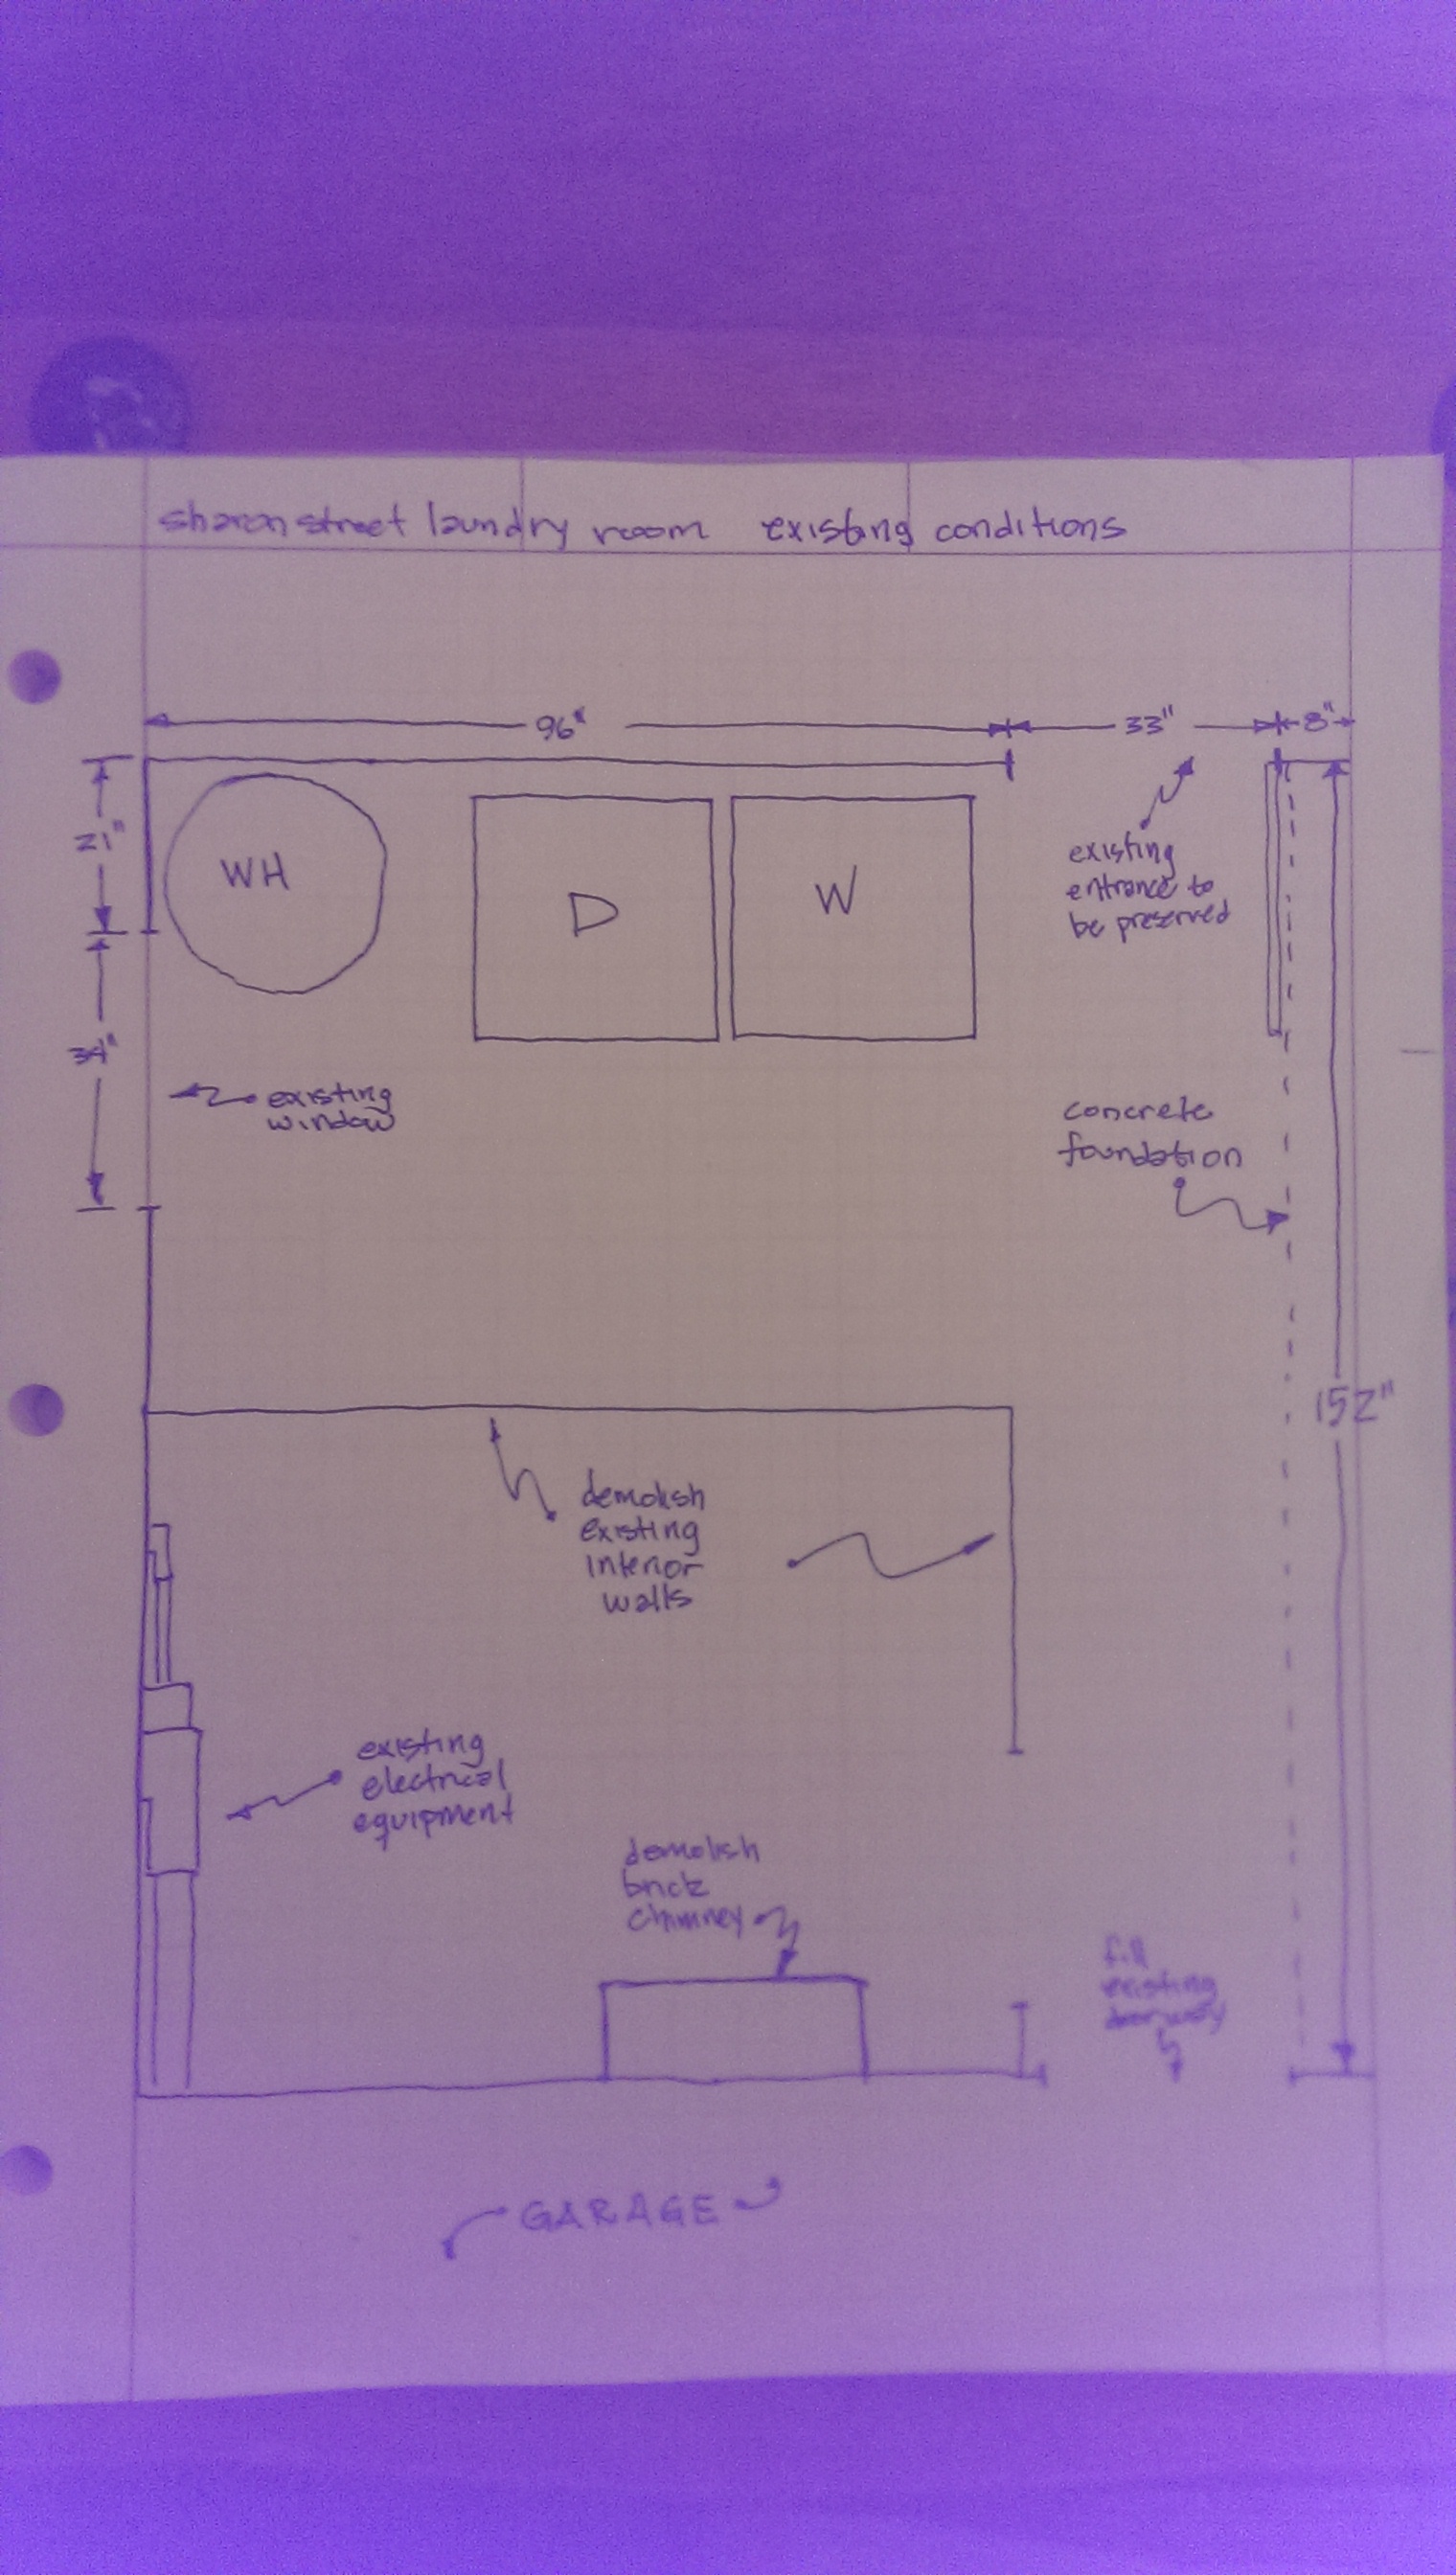 sharon street laundry room existing conditions
96"
33"
8"
21"
WH
D
W
existing
entrance to
be preserved
34"
existing
window
concrete
foundation
152"
demolish
existing
interior
walls
existing
electrical
equipment
demolish
brick
chimney
fill
existing
doorway
GARAGE